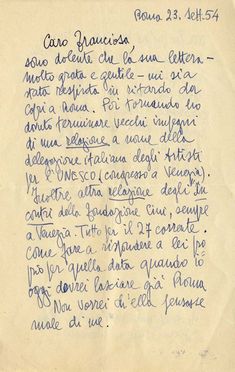 Roma 23. Sett. 54
Caro Franciosa,
sono dolente che la sua lettera -
molto grata e gentile - mi sia
stata respinta in ritardo da
Capri a Roma. Poi tornando ho
dovuto terminare vecchi impegni
di una relazione a nome della
delegazione italiana degli Artisti
per l'UNESCO (congresso a Venezia).
Inoltre altra relazione degli In
contri della fondazione Cini, sempre
a Venezia. Tutto per il 27 corrente.
Come fare a rispondere a lei pro
prio per quella data quando io
oggi dovrei lasciare già Roma
Non vorrei ch'ella pensasse
male di me.